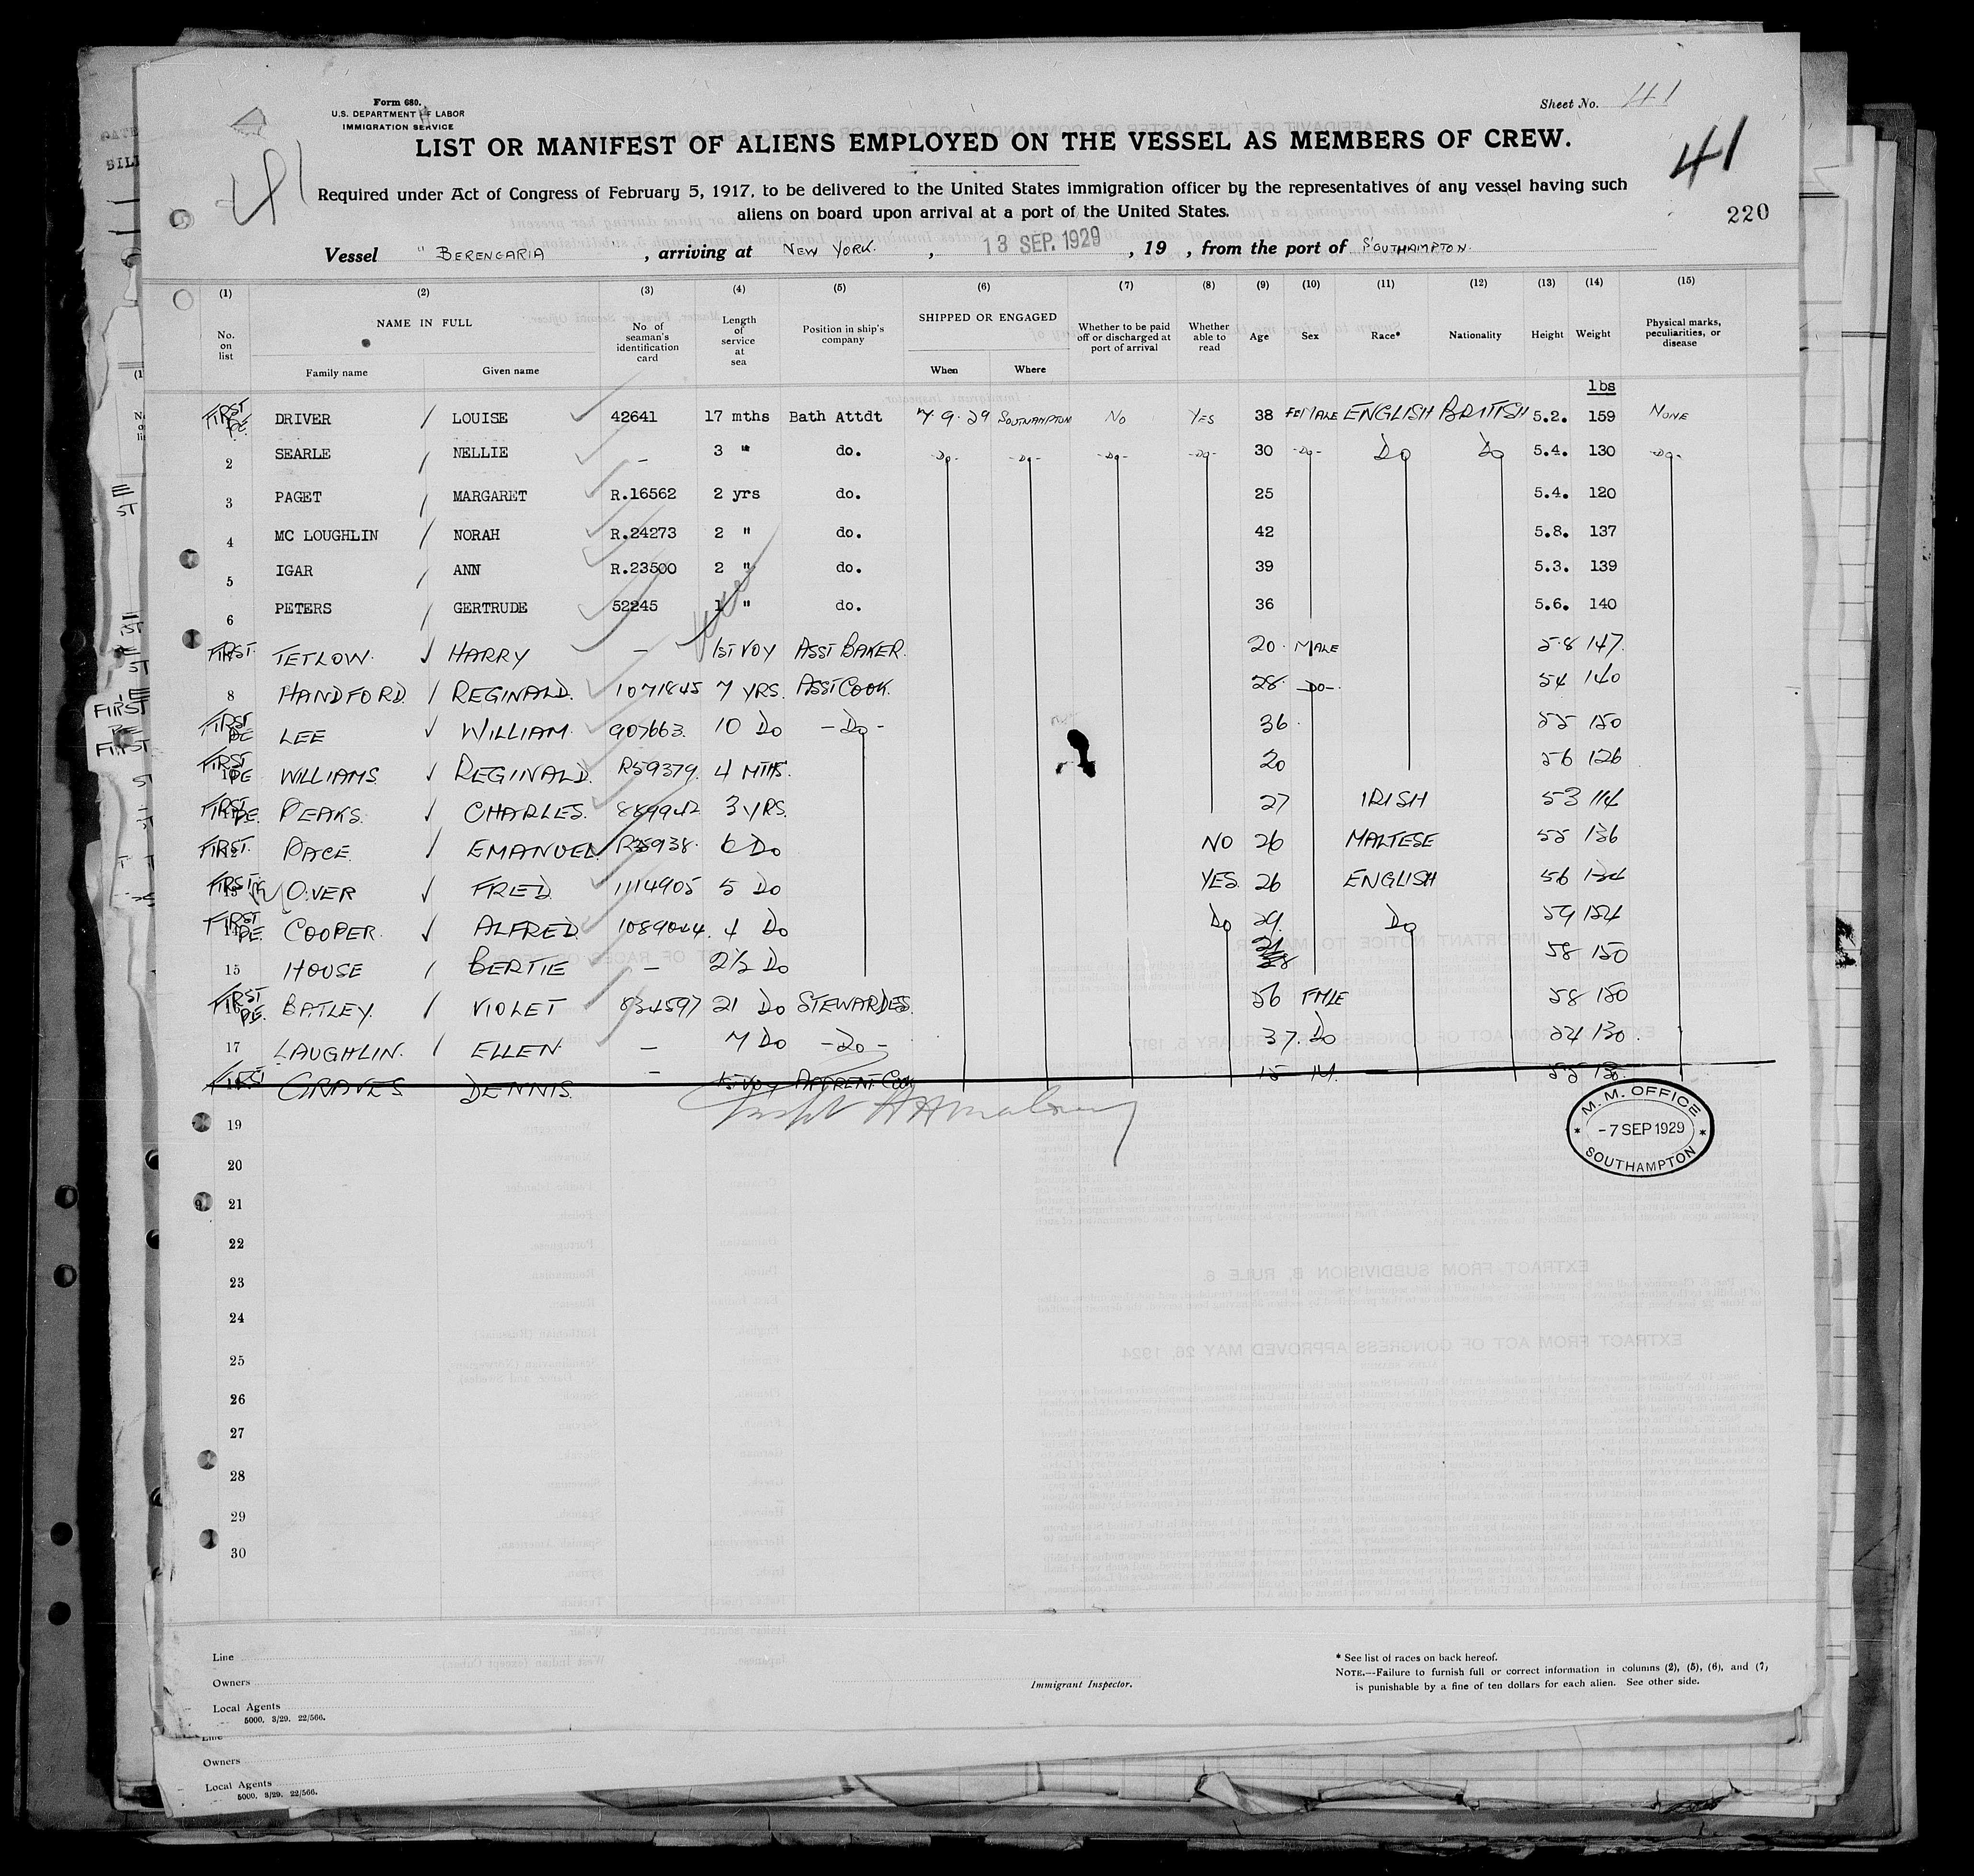 Form 680.
U.S. DEPARTMENT OF LABOR
IMMIGRATION SERVICE
Sheet No. 41
41
LIST OR MANIFEST OF ALIENS EMPLOYED ON THE VESSEL AS MEMBERS OF CREW.
41
Required under Act of Congress of February 5, 1917, to be delivered to the United States immigration officer by the representatives of any vessel having such
aliens on board upon arrival at a port of the United States.
220
Vessel "BERENGARIA , arriving at NEW YORK. , 13 SEP. 1929 , 19 , from the port of SOUTHAMPTON.
(1) (2) (3) (4) (5) (6) (7) (8) (9) (10) (11) (12) (13) (14) (15)
No. on list NAME IN FULL Family name Given name No. of seaman's identification card Length of service at sea Position in ship's company SHIPPED OR ENGAGED When Where Whether to be paid off or discharged at port of arrival Whether able to read Age Sex Race* Nationality Height Weight Physical marks, peculiarities, or disease
lbs
FIRST PE. DRIVER / LOUISE 42641 17 mths Bath Attdt 7.9.29 SOUTHAMPTON NO YES 38 FEMALE ENGLISH BRITISH 5.2. 159 NONE
2 SEARLE / NELLIE - 3 " do. -Do- -Do- -Do- -Do- 30 -Do- Do Do 5.4. 130 -Do-
3 PAGET / MARGARET R.16562 2 yrs do. 25 5.4. 120
4 MC LOUGHLIN / NORAH R.24273 2 " do. 42 5.8. 137
5 IGAR / ANN R.23500 2 " do. 39 5.3. 139
6 PETERS / GERTRUDE 52245 1 " do. 36 5.6. 140
FIRST. TETLOW. HARRY - 1ST VOY ASST BAKER. 20. MALE 5.8 147.
8 HANDFORD / REGINALD. 1071845 7 YRS. ASST COOK. 28. -DO-. 54 140
FIRST PE LEE WILLIAM. 907663. 10 Do -Do- 36. 55 150
FIRST PE WILLIAMS. REGINALD. R59379. 4 MTHS. 20 56 126
FIRST PE. PEAKS. CHARLES. 889942 3 YRS. 27 IRISH 53 114
FIRST. PACE. / EMANUEL. 6 Do NO 26 MALTESE 55 136
FIRST 13 OVER FRED. 1114905 5 Do YES. 26 ENGLISH 56
FIRST PE. COOPER. ALFRED. 1089044. 4 Do Do 29. Do 59 154
15 HOUSE / BERTIE - 2½ Do 58 150
FIRST PE. BATLEY. / VIOLET 834597 21 Do STEWARDES. 56 FMLE 58 150
17 LAUGHLIN. / ELLEN. - 7 Do -Do- 37. Do 54 130.
GRAVES DENNIS. - 1ST VOY APPRENT COOK 15 M. 55
M. M. OFFICE
-7 SEP 1929
SOUTHAMPTON
19
20
21
22
23
24
25
26
27
28
29
30
Line
Owners
Local Agents
5000. 3/29. 22/566.
Immigrant Inspector.
* See list of races on back hereof.
NOTE.—Failure to furnish full or correct information in columns (2), (5), (6), and (7,
is punishable by a fine of ten dollars for each alien. See other side.
Line
Owners
Local Agents
5000. 3/29. 22/566.